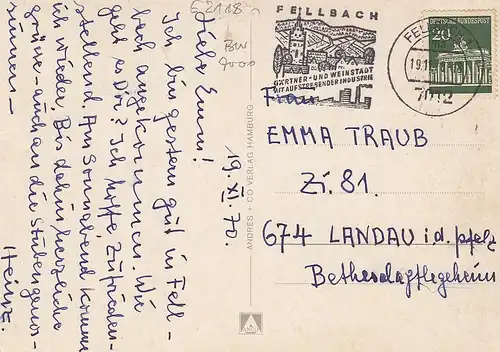 E2118
BW
9000
Liebe Emm!
19. XI. 70.
Ich bin gestern gut in Fell-
bach angekommen. Wie
geht es Dir? Ich hoffe zufrieden-
stellend. Am Sonnabend komme
ich wieder. Bis dahin herzliche
Grüsse – auch an die Stubengenos-
sinnen –
Heinz.
ANDRES + CO VERLAG HAMBURG
FELLBACH
GÄRTNER- UND WEINSTADT
MIT AUFSTREBENDER INDUSTRIE
FEL
19.11
7012
DEUTSCHE BUNDESPOST
20
Frau
EMMA TRAUB
Zi. 81.
674 LANDAU i.d. Pfalz
Bethesdapflegeheim